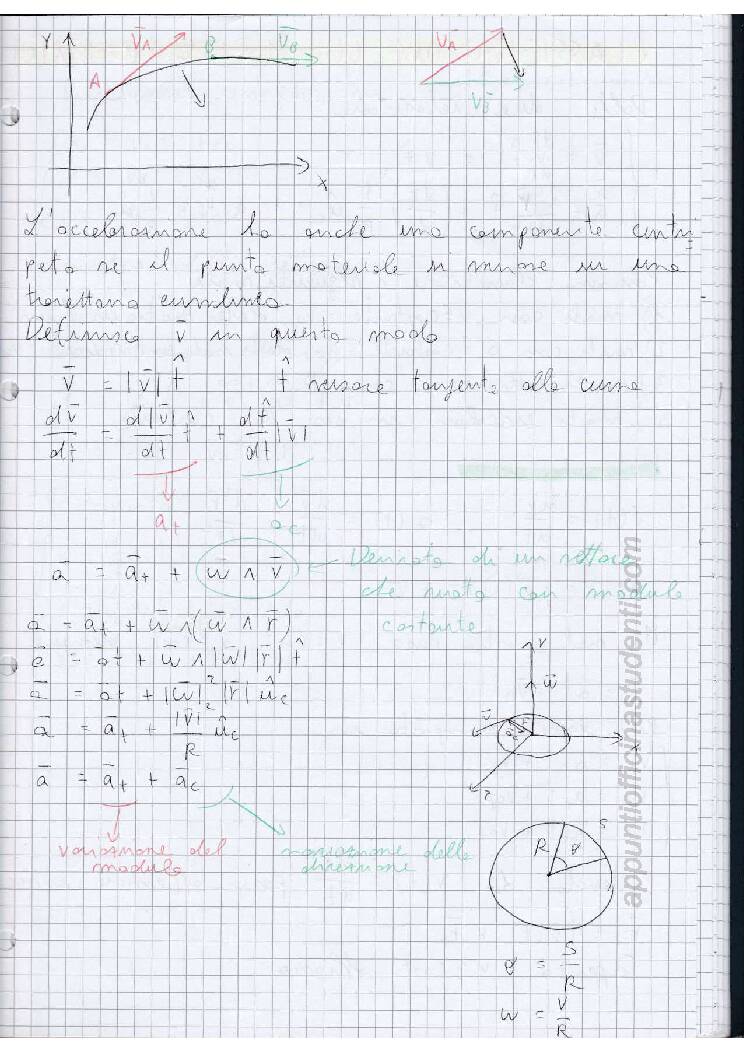 Y V̄A B V̄B V̄A
A
V̄B
X
L'accelerazione ha anche una componente centri
peta se il punto materiale si muove su una
traiettoria curvilinea.
Definisco v̄ in questo modo
v̄ = |v̄| t̂ t̂ versore tangente alla curva
dv̄/dt = d|v̄|/dt t̂ + dt̂/dt |v̄|
at ac
ā = āt + w̄ ∧ v̄ ← Derivata di un vettore
che ruota con modulo
costante
ā = āt + w̄ ∧ (w̄ ∧ r̄)
ā = āt + w̄ ∧ |w̄| |r̄| t̂
ā = āt + |w̄|² |r̄| ûc
ā = āt + |v̄|²/R ûc
ā = āt + āc
variazione del modulo
variazione della direzione
Y
w̄
v̄
X
Z
S
R θ
θ = S/R
w = V/R
appuntiofficinastudenti.com